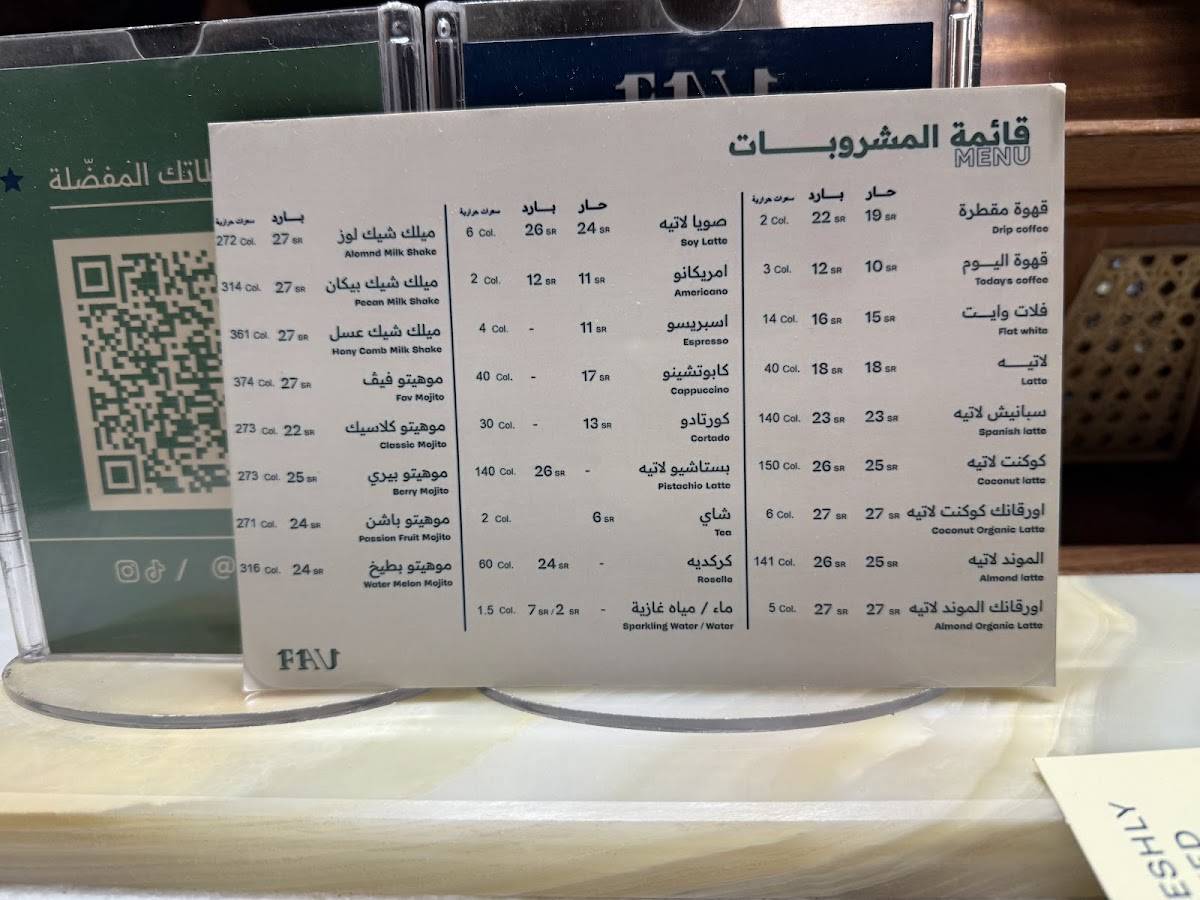 طاتك المفضّلة
قائمة المشروبات
MENU
حار بارد سعرات حرارية
قهوة مقطرة 19 SR 22 SR 2 Col.
Drip coffee
قهوة اليوم 10 SR 12 SR 3 Col.
Todays coffee
فلات وايت 15 SR 16 SR 14 Col.
Flat white
لاتيه 18 SR 18 SR 40 Col.
Latte
سبانيش لاتيه 23 SR 23 SR 140 Col.
Spanish latte
كوكنت لاتيه 25 SR 26 SR 150 Col.
Coconut latte
اورقانك كوكنت لاتيه 27 SR 27 SR 6 Col.
Coconut Organic Latte
الموند لاتيه 25 SR 26 SR 141 Col.
Almond latte
اورقانك الموند لاتيه 27 SR 27 SR 5 Col.
Almond Organic Latte
حار بارد سعرات حرارية
صويا لاتيه 24 SR 26 SR 6 Col.
Soy Latte
امريكانو 11 SR 12 SR 2 Col.
Americano
اسبريسو 11 SR - 4 Col.
Espresso
كابوتشينو 17 SR - 40 Col.
Cappuccino
كورتادو 13 SR - 30 Col.
Cortado
بستاشيو لاتيه - 26 SR 140 Col.
Pistachio Latte
شاي 6 SR 2 Col.
Tea
كركديه - 24 SR 60 Col.
Roselle
ماء / مياه غازية - 7 SR / 2 SR 1.5 Col.
Sparkling Water / Water
بارد سعرات حرارية
ميلك شيك لوز 27 SR 272 Col.
Alomnd Milk Shake
ميلك شيك بيكان 27 SR 314 Col.
Pecan Milk Shake
ميلك شيك عسل 27 SR 361 Col.
Hony Comb Milk Shake
موهيتو فيڤ 27 SR 374 Col.
Fav Mojito
موهيتو كلاسيك 22 SR 273 Col.
Classic Mojito
موهيتو بيري 25 SR 273 Col.
Berry Mojito
موهيتو باشن 24 SR 271 Col.
Passion Fruit Mojito
موهيتو بطيخ 24 SR 316 Col.
Water Melon Mojito
/ @
ESHLY
ED